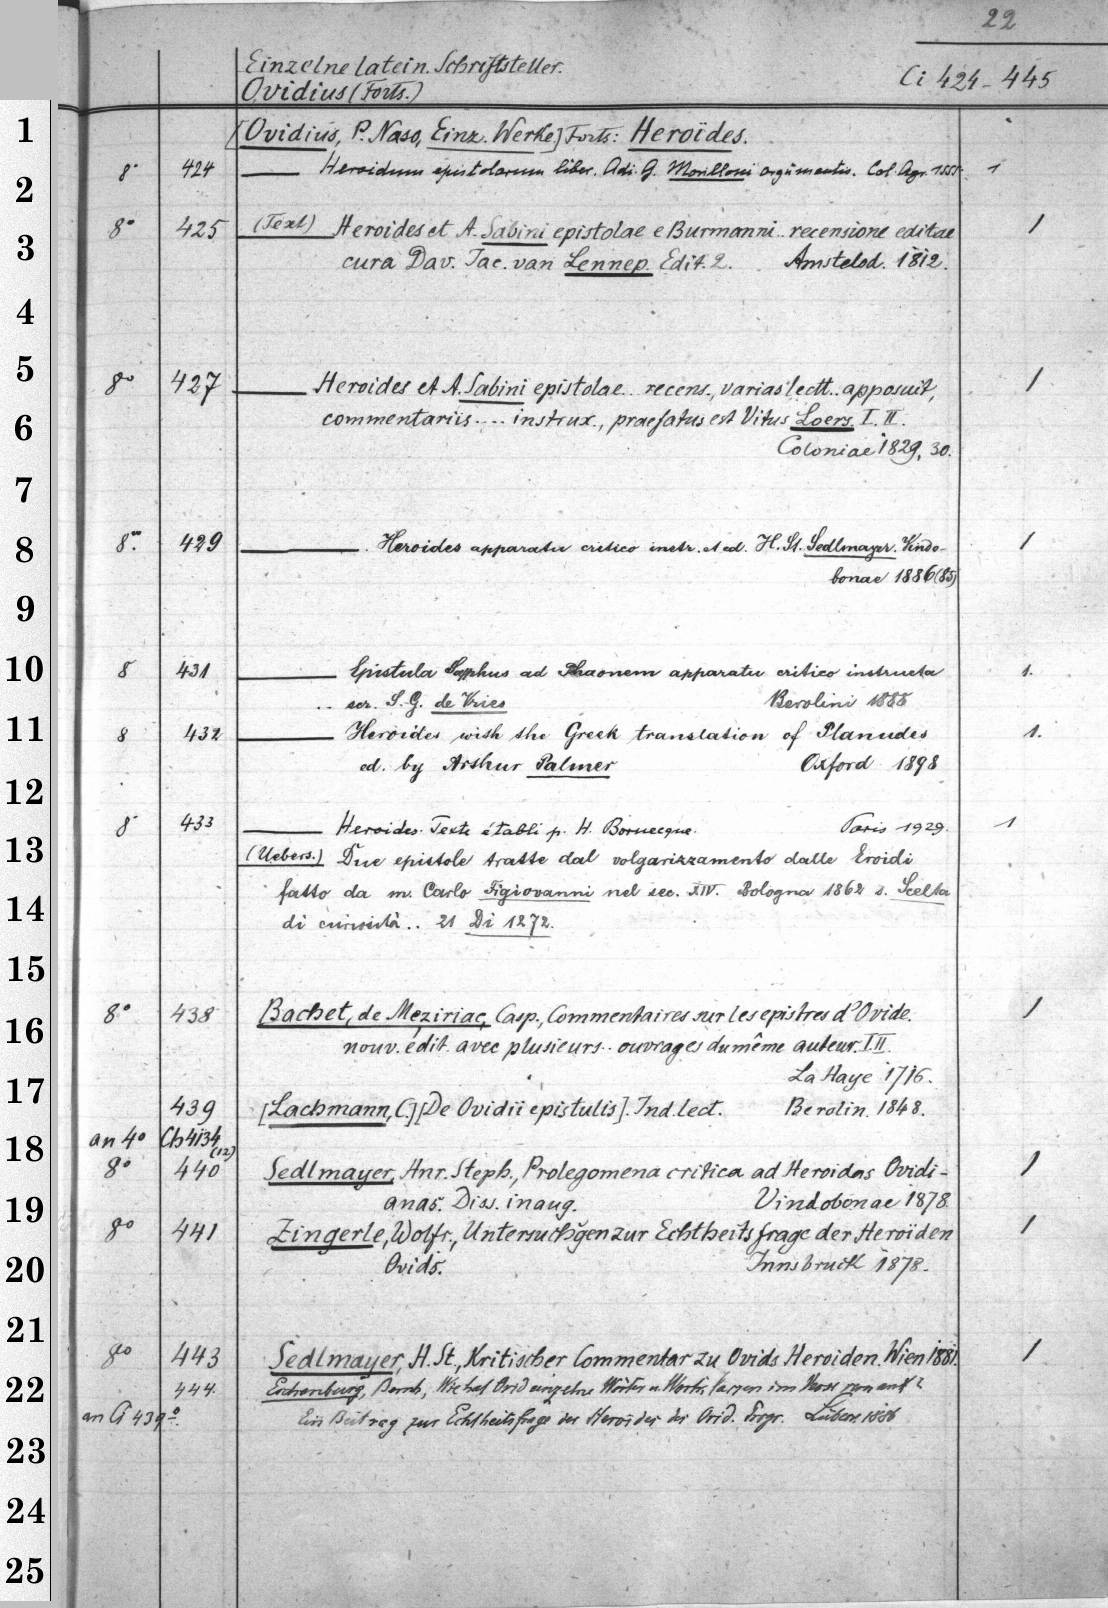 22
Einzelne latein. Schriftsteller.
Ovidius (Forts.) Ci 424-445
1 [Ovidius, P. Naso, Einz. Werke] Forts: Heroïdes.
8° 424 —— Heroidum epistolarum liber. Adi. G. Morilloni argumentis. Col. Agr. 1555. 1
2
8° 425 (Text) —— Heroides et A. Sabini epistolae e Burmanni.. recensione editae 1
3 cura Dav. Jac. van Lennep. Edit. 2. Amstelod. 1812.
4
5
8° 427 —— Heroides et A. Sabini epistolae.. recens., varias lectt.. apposuit, 1
6 commentariis.... instrux., praefatus est Vitus Loers. I. II.
Coloniae 1829, 30.
7
8 8° 429 —— Heroides apparatu critico instr. et ed. H. St. Sedlmayer. Vindo-
bonae 1886 (85) 1
9
10 8 431 —— Epistula Sapphus ad Phaonem apparatu critico instructa 1.
.. scr. S. G. de Vries Berolini 1888
11 8 432 —— Heroides with the Greek translation of Planudes 1.
ed. by Arthur Palmer Oxford 1898
12
8 433 —— Heroides. Texte établi p. H. Bornecque. Paris 1929. 1
13 (Uebers.) Due epistole tratte dal volgarizzamento dalle Eroidi
fatto da m. Carlo Figiovanni nel sec. XIV. Bologna 1862 s. Scelta
14 di curiosità.. 21 Di 1272.
15
8° 438 Bachet, de Meziriac, Casp., Commentaires sur les epistres d'Ovide. 1
16 nouv. édit. avec plusieurs.. ouvrages du même auteur. I. II.
La Haye 1716.
17 439 [Lachmann, C.] [De Ovidii epistulis]. Ind. lect. Berolin. 1848.
18 an 4° Ch 4134 (12)
8° 440 Sedlmayer, Hnr. Steph., Prolegomena critica ad Heroidas Ovidi- 1
19 anas. Diss. inaug. Vindobonae 1878.
8° 441 Zingerle, Wolfr., Untersuchgen zur Echtheitsfrage der Heroiden 1
20 Ovids. Innsbruck 1878.
21
8° 443 Sedlmayer, H. St., Kritischer Commentar zu Ovids Heroiden. Wien 1881. 1
22 444 Eschenburg, Bernh., Wie hat Ovid einzelne Wörter u. Wortklassen im Verse verwandt?
an Ci 439° Ein Beitrag zur Echtheitsfrage der Heroides des Ovid. Progr. Lübeck 1886
23
24
25